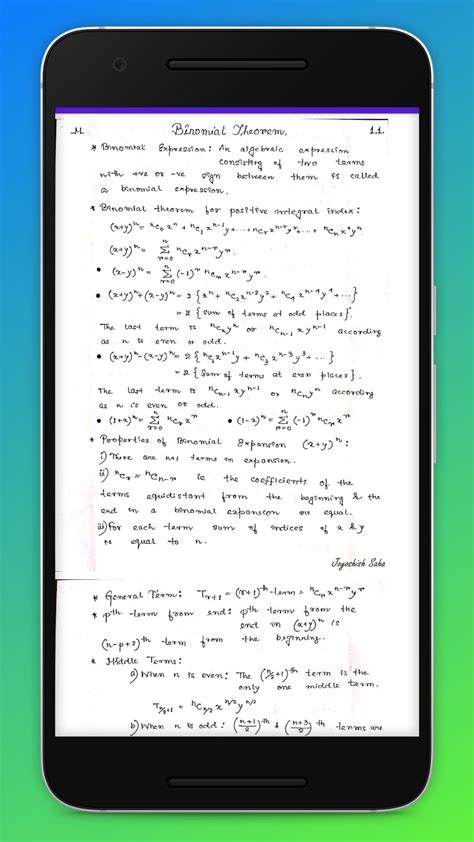 M. Binomial Theorem. 1.1.
* Binomial Expression: An algebraic expression
consisting of two terms
with +ve or -ve sign between them is called
a binomial expression.
* Binomial theorem for positive integral index:
(x+y)ⁿ = ⁿC₀xⁿ + ⁿC₁xⁿ⁻¹y + ... + ⁿCᵣxⁿ⁻ʳyʳ + ... + ⁿCₙx⁰yⁿ
(x+y)ⁿ = Σ_{r=0}^{n} ⁿCᵣ xⁿ⁻ʳyʳ
• (x-y)ⁿ = Σ_{r=0}^{n} (-1)ʳ ⁿCᵣ xⁿ⁻ʳyʳ.
• (x+y)ⁿ+(x-y)ⁿ = 2{xⁿ + ⁿC₂xⁿ⁻²y² + ⁿC₄xⁿ⁻⁴y⁴ + ...}
= 2{sum of terms at odd places}.
The last term is ⁿCₙyⁿ or ⁿCₙ₋₁xyⁿ⁻¹ according
as n is even or odd.
• (x+y)ⁿ-(x-y)ⁿ = 2{ⁿC₁xⁿ⁻¹y + ⁿC₃xⁿ⁻³y³ + ...}
= 2{Sum of terms at even places}.
The last term is ⁿCₙ₋₁xyⁿ⁻¹ or ⁿCₙyⁿ according
as n is even or odd.
• (1+x)ⁿ = Σ_{r=0}^{n} ⁿCᵣxʳ • (1-x)ⁿ = Σ_{r=0}^{n} (-1)ʳ ⁿCᵣxʳ
* Properties of Binomial Expansion (x+y)ⁿ:
i) There are n+1 terms in expansion.
ii) ⁿCᵣ = ⁿCₙ₋ᵣ ie the coefficients of the
terms equidistant from the beginning & the
end in a binomial expansion are equal.
iii) For each term sum of indices of x & y
is equal to n.
Joyoshish Saha
* General Term: Tᵣ₊₁ = (r+1)ᵗʰ term = ⁿCᵣxⁿ⁻ʳyʳ
* pth term from end: pth term from the
end in (x+y)ⁿ is
(n-p+2)ᵗʰ term from the beginning.
* Middle Terms:
a) When n is even: The (n/2+1)ᵗʰ term is the
only one middle term.
T_{n/2+1} = ⁿC_{n/2} x^{n/2} y^{n/2}
b) When n is odd: ((n+1)/2)ᵗʰ & ((n+3)/2)ᵗʰ terms are